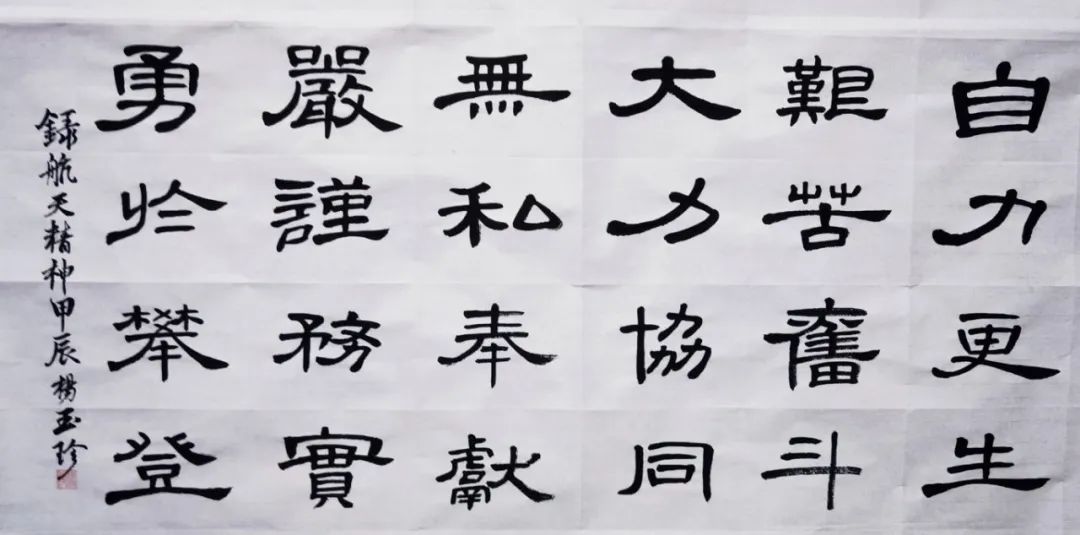 自力更生
艱苦奮斗
大力協同
無私奉獻
嚴謹務實
勇於攀登
録航天精神甲辰楊玉珍